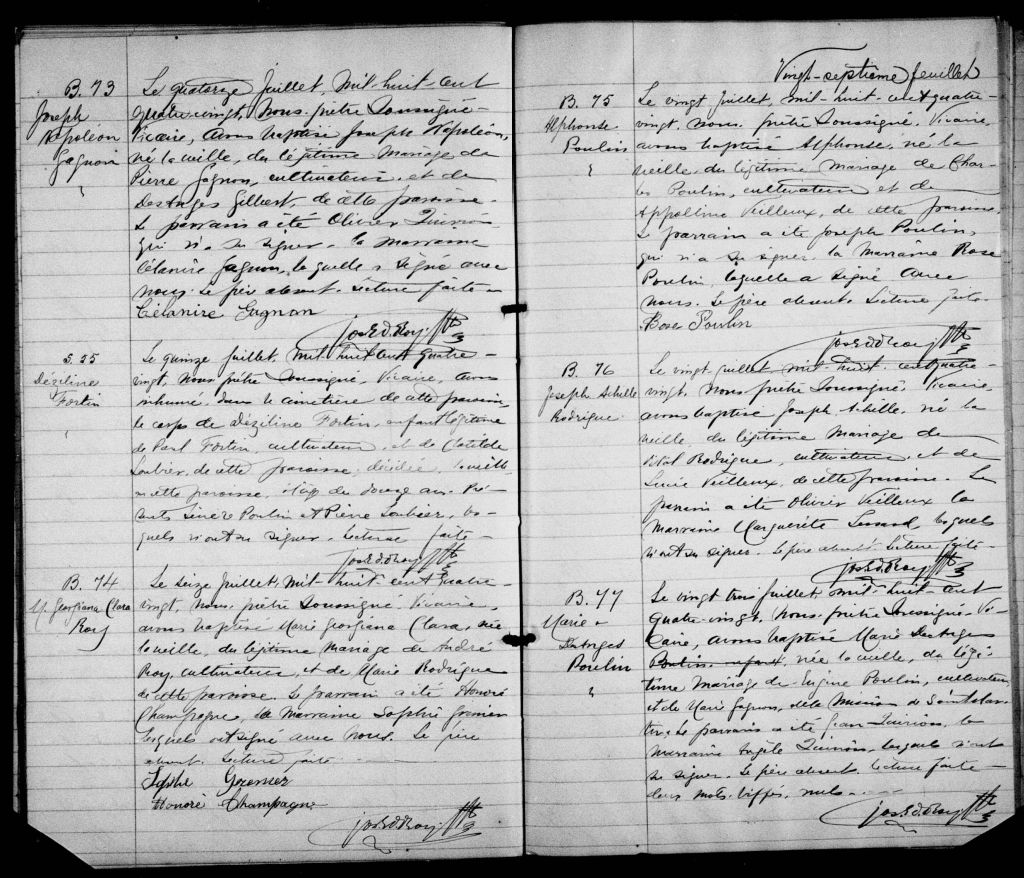 B. 73
Joseph
Napoléon
Gagnon
Le quatorze Juillet, mil-huit-cent
quatre-vingt, nous-prêtre soussigné-
Vicaire, avons baptisé Joseph Napoléon,
né la veille, du légitime mariage de
Pierre Gagnon, cultivateur, et de
DesAnges Gilbert, de cette paroisse.
Le parrain a été Olivier Quirion
qui n'a su signer. la marraine
Célanire Gagnon, laquelle a signé avec
nous. Le père absent. Lecture faite-
Célanire Gagnon
Jos E. d. Roy. Ptre
S. 55
Déziline
Fortin
Le quinze juillet, mil-huit-cent quatre-
vingt, nous prêtre soussigné, Vicaire, avons
inhumé dans le cimetière de cette paroisse,
le corps de Déziline Fortin, enfant légitime
de Paul Fortin, cultivateur, et de Clotilde
Loubier, de cette paroisse, décédée,
en cette paroisse, âgée de douze ans. Pré-
sents Poulin et Pierre Loubier, les-
quels n'ont su signer. Lecture faite-
Jos E. d. Roy Ptre
B. 74
M. Georgiana Clara
Roy
Le seize Juillet, mil-huit cent quatre-
vingt, nous, prêtre soussigné. Vicaire,
avons baptisé Marie Georgiana Clara, née
la veille, du légitime mariage de André
Roy, cultivateur, et de Marie Rodrigue
de cette paroisse. Le parrain a été Honoré
Champagne, la marraine Sophie Grenier
lesquels ont signé avec nous. Le père
absent. Lecture faite
Sophie Grenier
Honoré Champagne
Jos E. d. Roy. Ptre
Vingt-septième feuillet
B. 75
Alphonse
Poulin
Le vingt Juillet, mil-huit-cent quatre-
vingt, nous, prêtre soussigné, Vicaire,
avons baptisé Alphonse, né la
veille, du légitime mariage de Char-
les Poulin, cultivateur et de
Appolline Veilleux, de cette paroisse.
Le parrain a été Joseph Poulin,
qui n'a su signer. la marraine Rose
Poulin, laquelle a signé avec
nous. Le père absent. Lecture faite.
Rose Poulin
Jos E. d. Roy Ptre
B. 76
Joseph Achille
Rodrigue
Le vingt juillet mil-huit-cent quatre-
vingt. Nous, prêtre soussigné, Vicaire,
avons baptisé Joseph Achille, né la
veille, du légitime mariage de
Vital Rodrigue, cultivateur, et de
Lucie Veilleux, de cette paroisse. Le
parrain a été Olivier Veilleux la
marraine Marguerite Lessard, lesquels
n'ont su signer. Le père absent. Lecture faite-
Jos E. d. Roy Ptre
B. 77
Marie-
DesAnges
Poulin
Le vingt trois juillet mil-huit-cent
quatre-vingt. Nous-prêtre soussigné. Vi-
caire, avons baptisé Marie DesAnges
Poulin, enfant, née la veille, du légi-
time mariage de Eugène Poulin, cultivateur,
et de Marie Gagnon, de la mission de
Le parrain a été Jean Quirion, la
marraine Angèle Quirion, lesquels n'ont
su signer. Le père absent. Lecture faite-
deux mots biffés, nuls.
Jos E. d. Roy Ptre